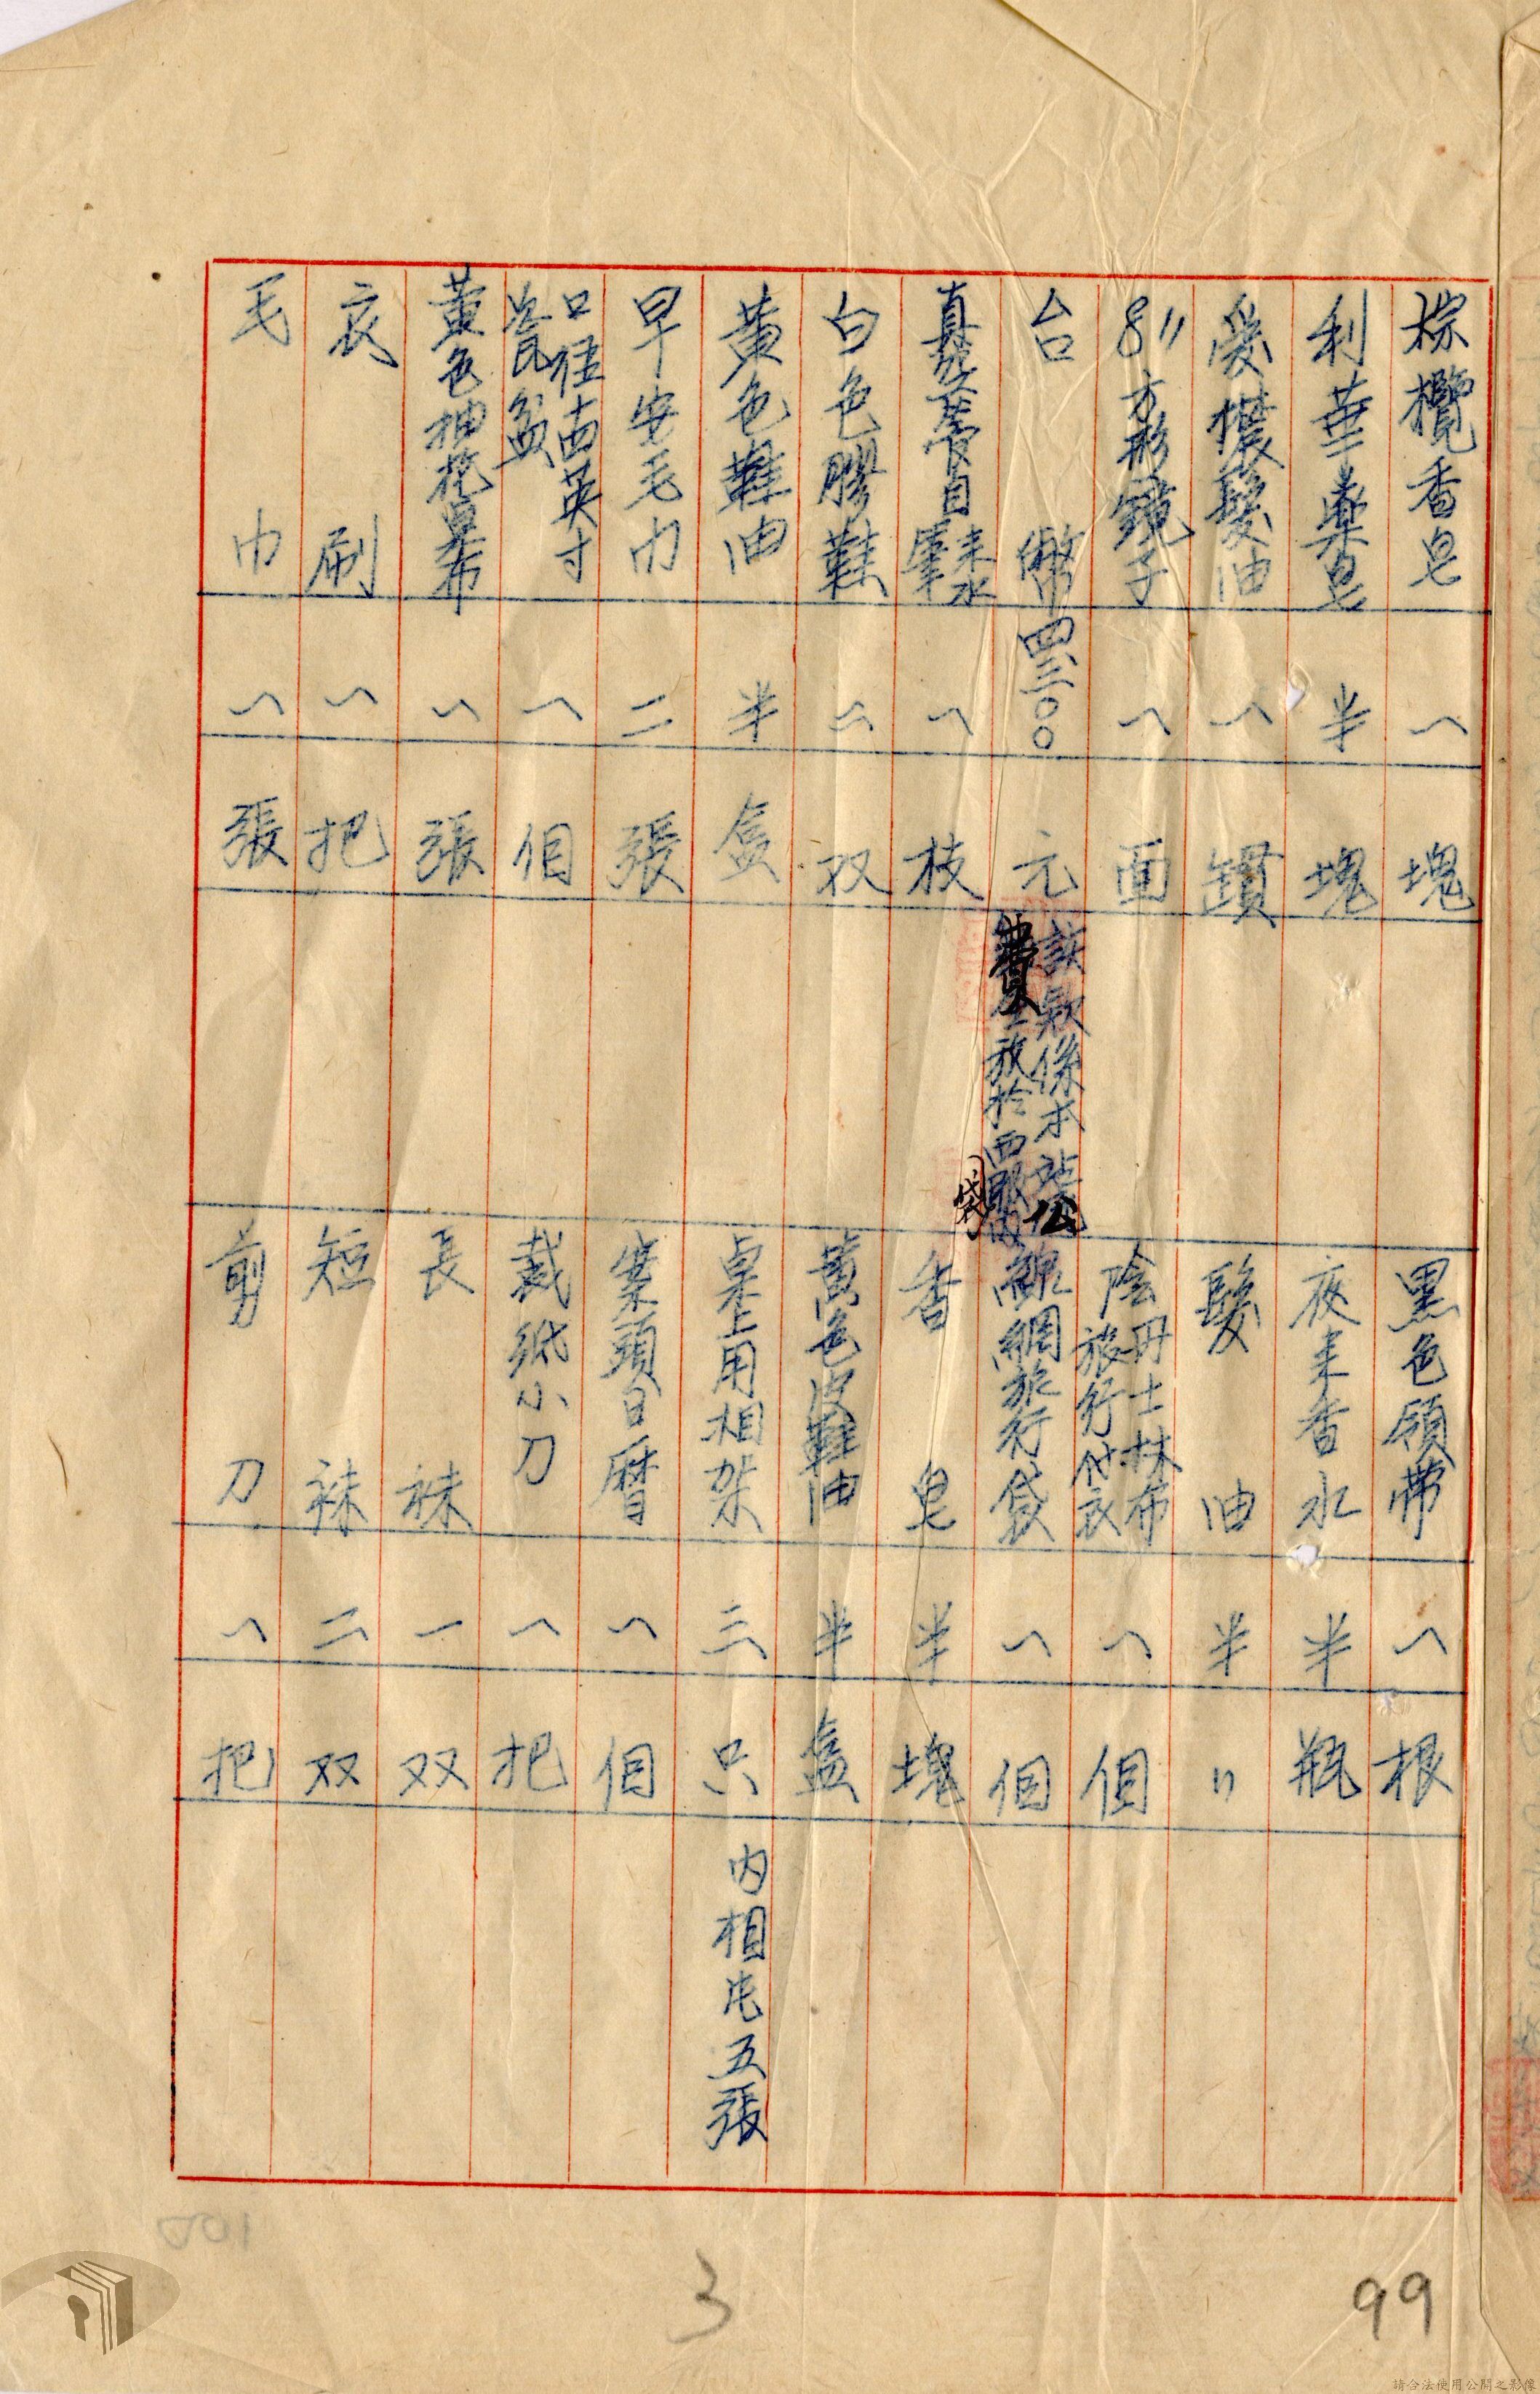 棕欖香皂 一 塊
利華藥皂 半 塊
愛儂髮油 一 鑵
8〃方形鏡子 一 面
台幣 四三〇〇 元 該欵係本站公費放於西服內袋
真空管自來水筆 一 枝
白色膠鞋 二 双
黃色鞋油 半 盒
早安毛巾 二 張
口徑十四英寸瓷盆 一 個
黃色抽花桌布 一 張
衣刷 一 把
毛巾 一 張
黑色領帶 一 根
夜来香水 半 瓶
髮油 半 〃
陰丹士林布旅行付衣 一 個
線網旅行袋 一 個
香皂 半 塊
黃色皮鞋油 半 盒
桌上用相架 三 只 內相片五張
案頭日曆 一 個
裁紙小刀 一 把
長袜 一 双
短袜 二 双
剪刀 一 把
001
3
99
請合法使用公開之影像